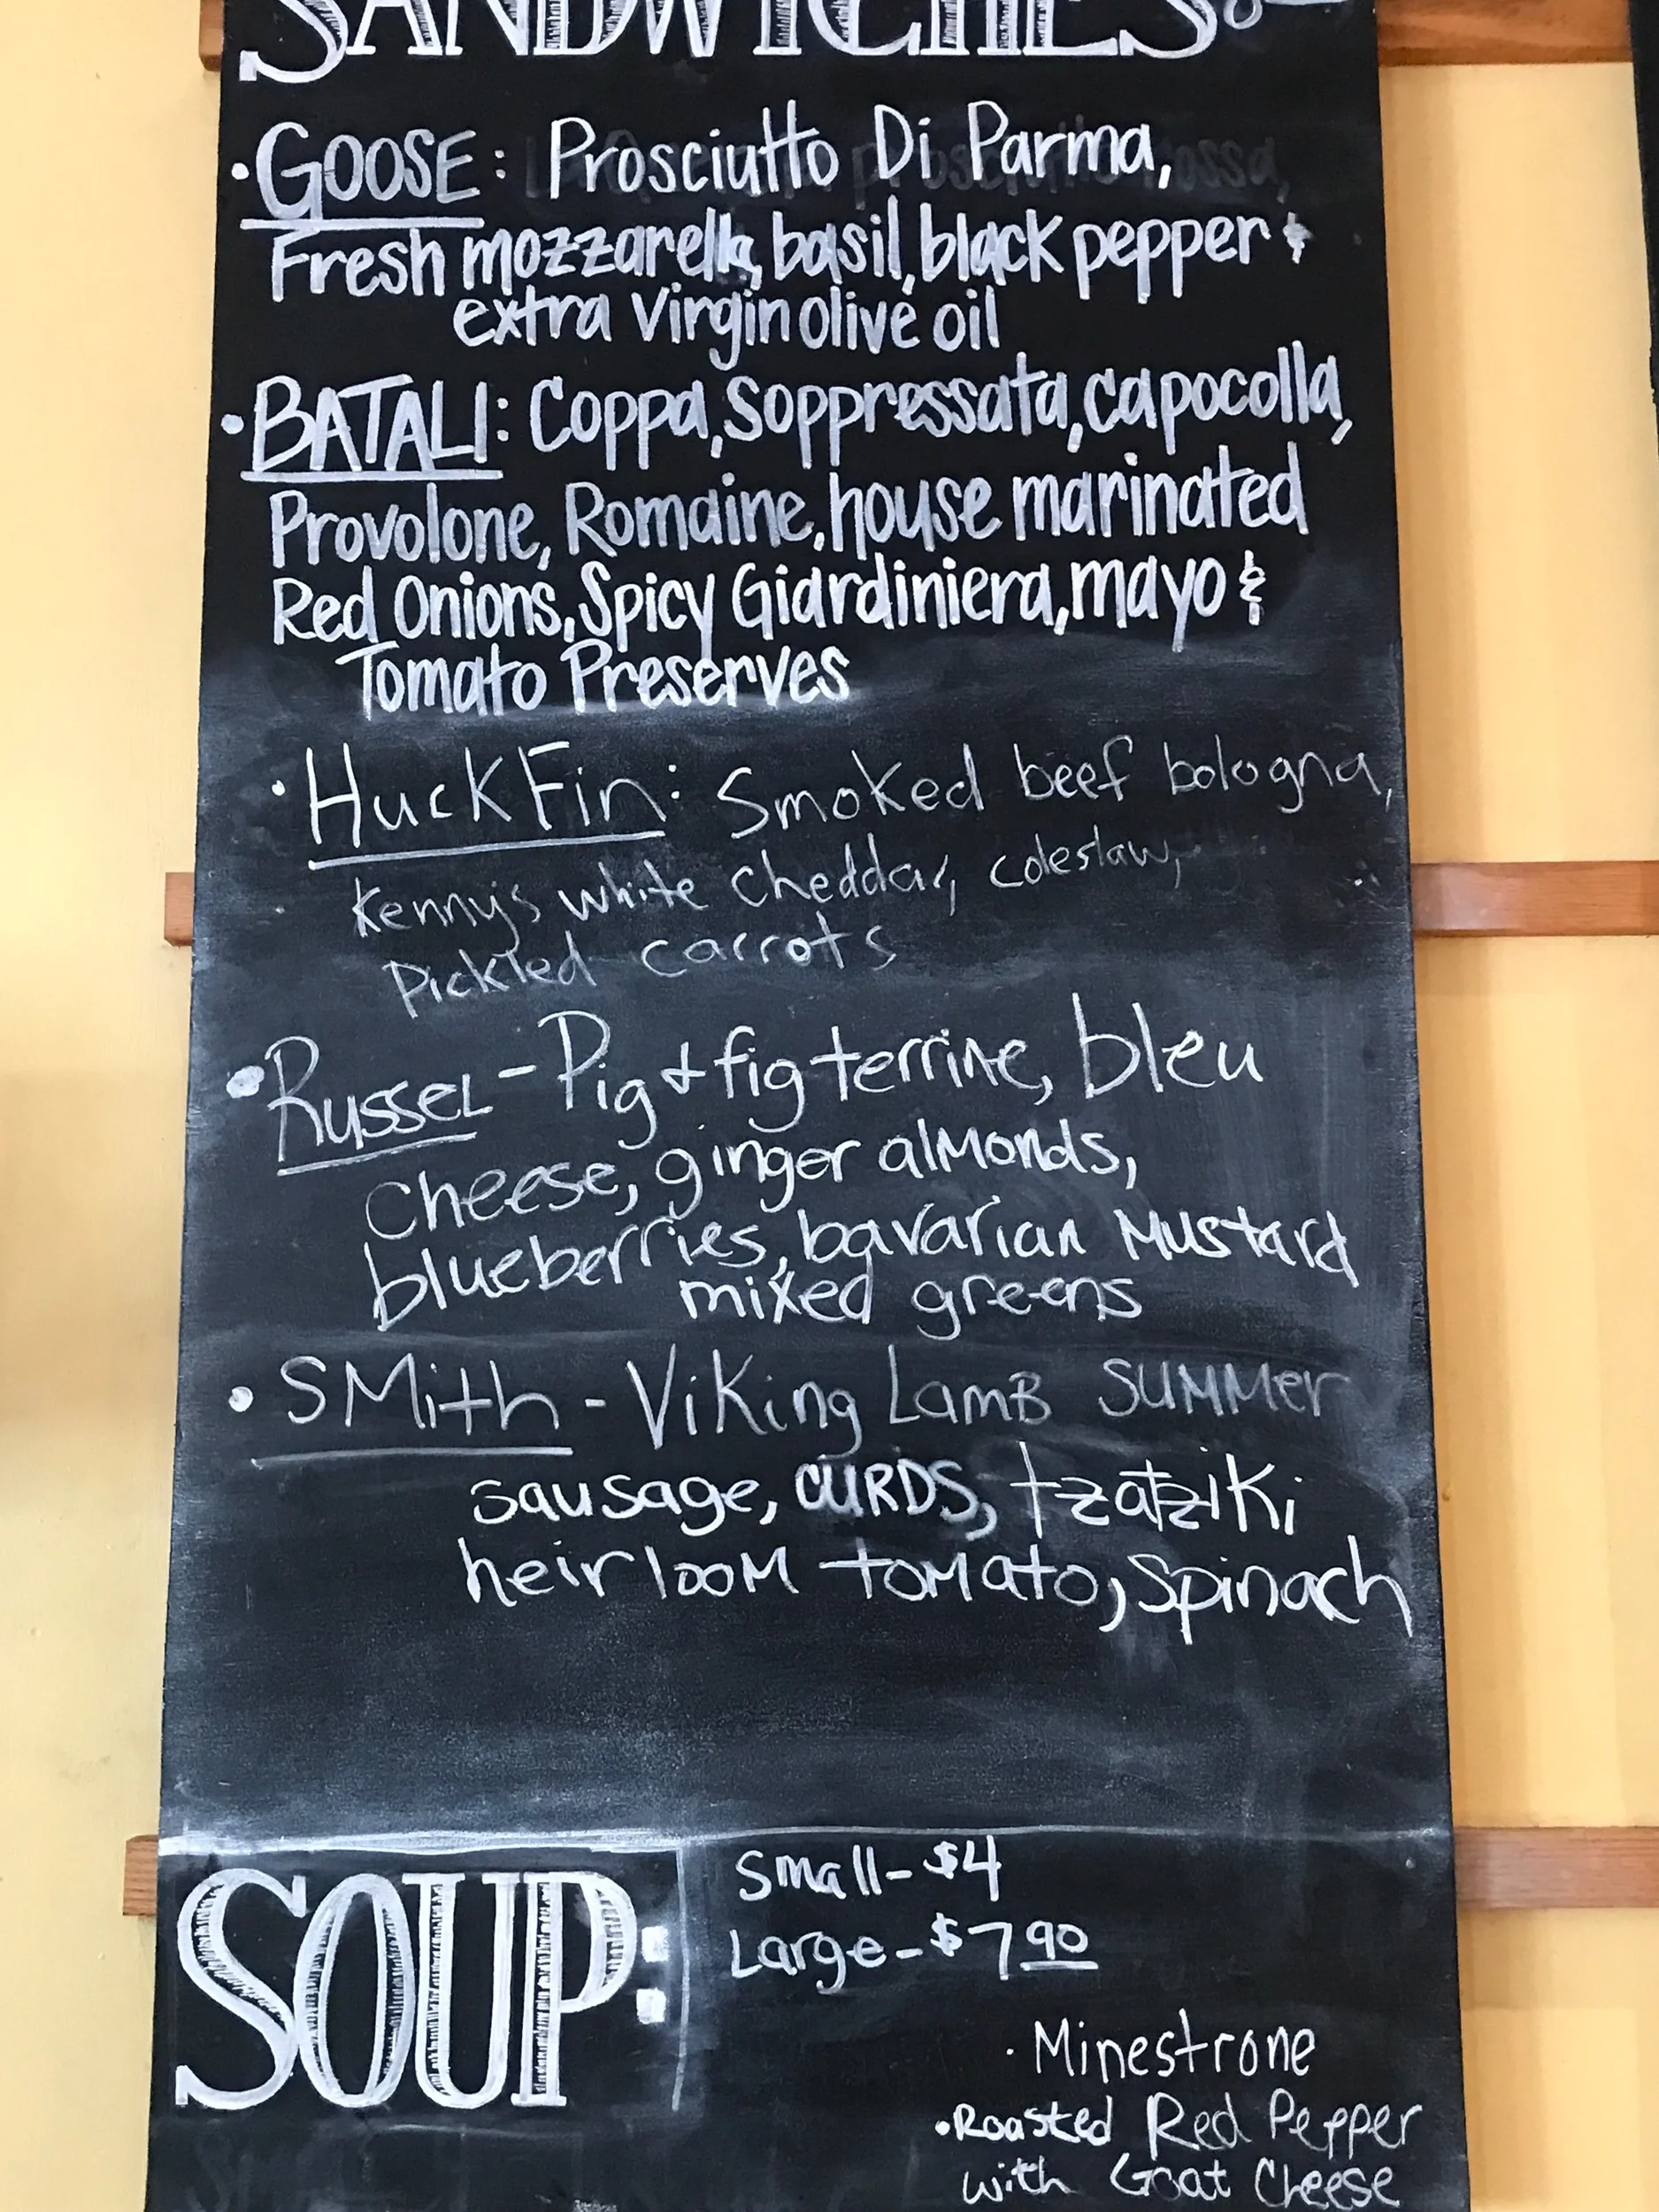 SANDWICHES
• GOOSE: Prosciutto Di Parma,
Fresh mozzarella, basil, black pepper &
extra virgin olive oil
• BATALI: Coppa, Soppressata, capocolla,
Provolone, Romaine, house marinated
Red Onions, Spicy Giardiniera, mayo &
Tomato Preserves
• Huck Fin: Smoked beef bologna,
Kenny's white cheddar, coleslaw,
Pickled carrots
• Russel - Pig & fig terrine, bleu
cheese, ginger almonds,
blueberries, bavarian Mustard
mixed greens
• SMith - Viking LamB SUMMer
sausage, CURDS, tzatziki
heirlooM toMato, Spinach
SOUP:
Small - $4
Large - $7 90
• Minestrone
• Roasted Red Pepper
with Goat Cheese